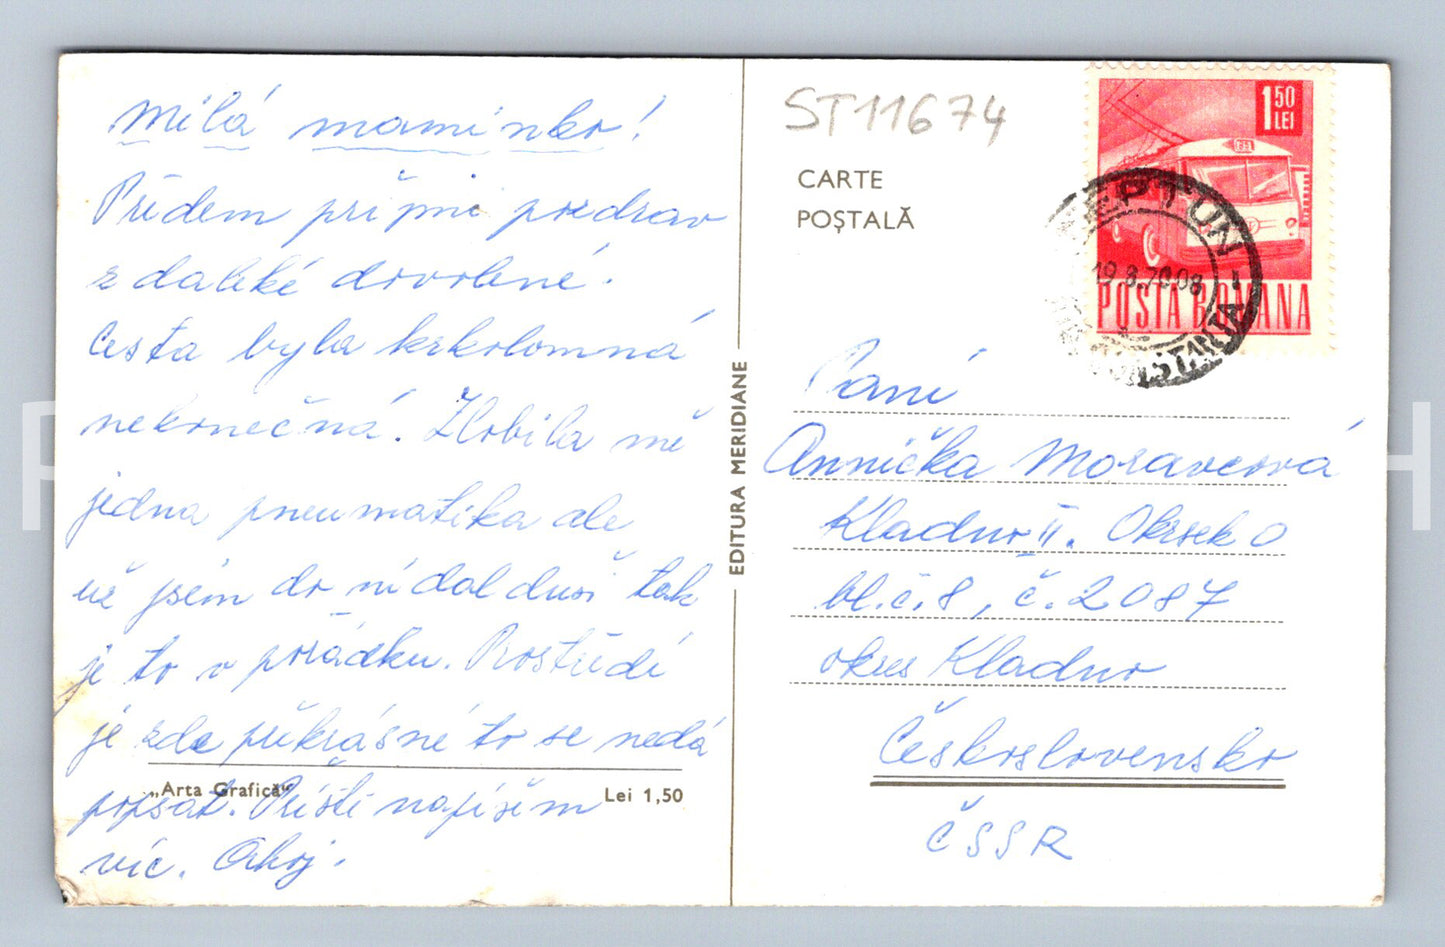 Milá maminko!
Předem přijmi pozdrav
z daleké dovolené.
Cesta byla krkolomná
nekonečná. Zlobila mě
jedna pneumatika ale
už jsem do ní dal duši tak
je to v pořádku. Prostředí
je zde překrásné to se nedá
popsat. Příště napíšem
víc. Ahoj.
„Arta Grafică“
Lei 1,50
EDITURA MERIDIANE
ST11674
CARTE
POȘTALĂ
1 50
LEI
POSTA ROMANA
NEPTUN
19.8.70.08
CONSTANTA
Paní
Annička Moravcová
Kladno II. Okrsek 0
bl. č. 8, č. 2087
okres Kladno
Československo
ČSSR